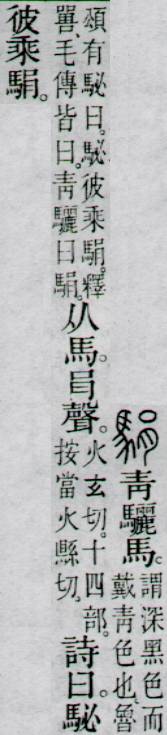 駽 青驪馬。
謂深黑色而
戴青色也。魯
頌有駜曰。駜彼乘駽。釋
嘼、毛傳皆曰。青驪曰駽。
从馬。肙聲。
火玄切。十四部。
按當火縣切。
詩曰。駜
彼乘駽。